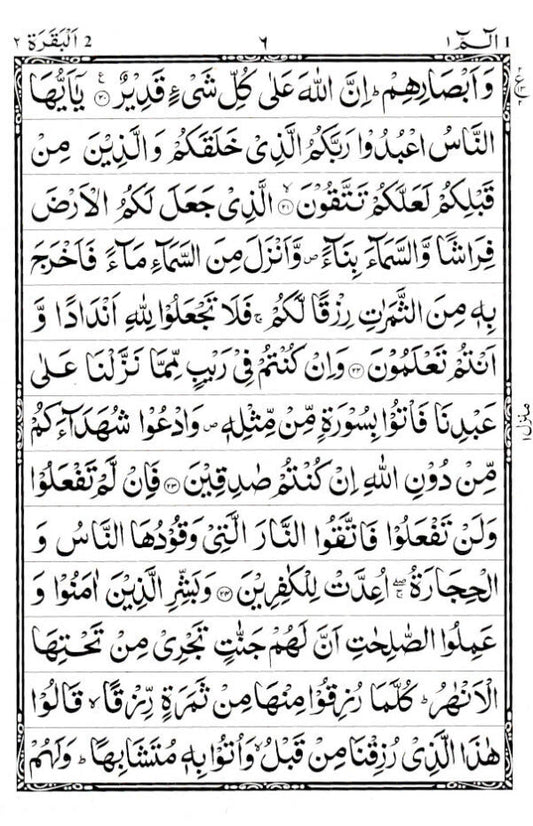 2 اَلْبَقَرَة ٢
٦
الٓـمّٓ ١ 1
وَاَبْصَارِهِمْ ؕ اِنَّ اللّٰهَ عَلٰى كُلِّ شَیْءٍ قَدِیْرٌ ۟۠ ۝۲۰ یٰۤاَیُّهَا
النَّاسُ اعْبُدُوْا رَبَّكُمُ الَّذِیْ خَلَقَكُمْ وَالَّذِیْنَ مِنْ
قَبْلِكُمْ لَعَلَّكُمْ تَتَّقُوْنَ ۝۲۱ۙ الَّذِیْ جَعَلَ لَكُمُ الْاَرْضَ
فِرَاشًا وَّالسَّمَآءَ بِنَآءً ۪ وَّاَنْزَلَ مِنَ السَّمَآءِ مَآءً فَاَخْرَجَ
بِهٖ مِنَ الثَّمَرٰتِ رِزْقًا لَّكُمْ ۚ فَلَا تَجْعَلُوْا لِلّٰهِ اَنْدَادًا وَّ
اَنْتُمْ تَعْلَمُوْنَ ۝۲۲ وَاِنْ كُنْتُمْ فِیْ رَیْبٍ مِّمَّا نَزَّلْنَا عَلٰى
عَبْدِنَا فَاْتُوْا بِسُوْرَةٍ مِّنْ مِّثْلِهٖ ۪ وَادْعُوْا شُهَدَآءَكُمْ
مِّنْ دُوْنِ اللّٰهِ اِنْ كُنْتُمْ صٰدِقِیْنَ ۝۲۳ فَاِنْ لَّمْ تَفْعَلُوْا
وَلَنْ تَفْعَلُوْا فَاتَّقُوا النَّارَ الَّتِیْ وَقُوْدُهَا النَّاسُ وَ
الْحِجَارَةُ ۖۚ اُعِدَّتْ لِلْكٰفِرِیْنَ ۝۲۴ وَبَشِّرِ الَّذِیْنَ اٰمَنُوْا وَ
عَمِلُوا الصّٰلِحٰتِ اَنَّ لَهُمْ جَنّٰتٍ تَجْرِیْ مِنْ تَحْتِهَا
الْاَنْهٰرُ ؕ كُلَّمَا رُزِقُوْا مِنْهَا مِنْ ثَمَرَةٍ رِّزْقًا ۙ قَالُوْا
هٰذَا الَّذِیْ رُزِقْنَا مِنْ قَبْلُ ۙ وَاُتُوْا بِهٖ مُتَشَابِهًا ؕ وَلَهُمْ
منزل ١